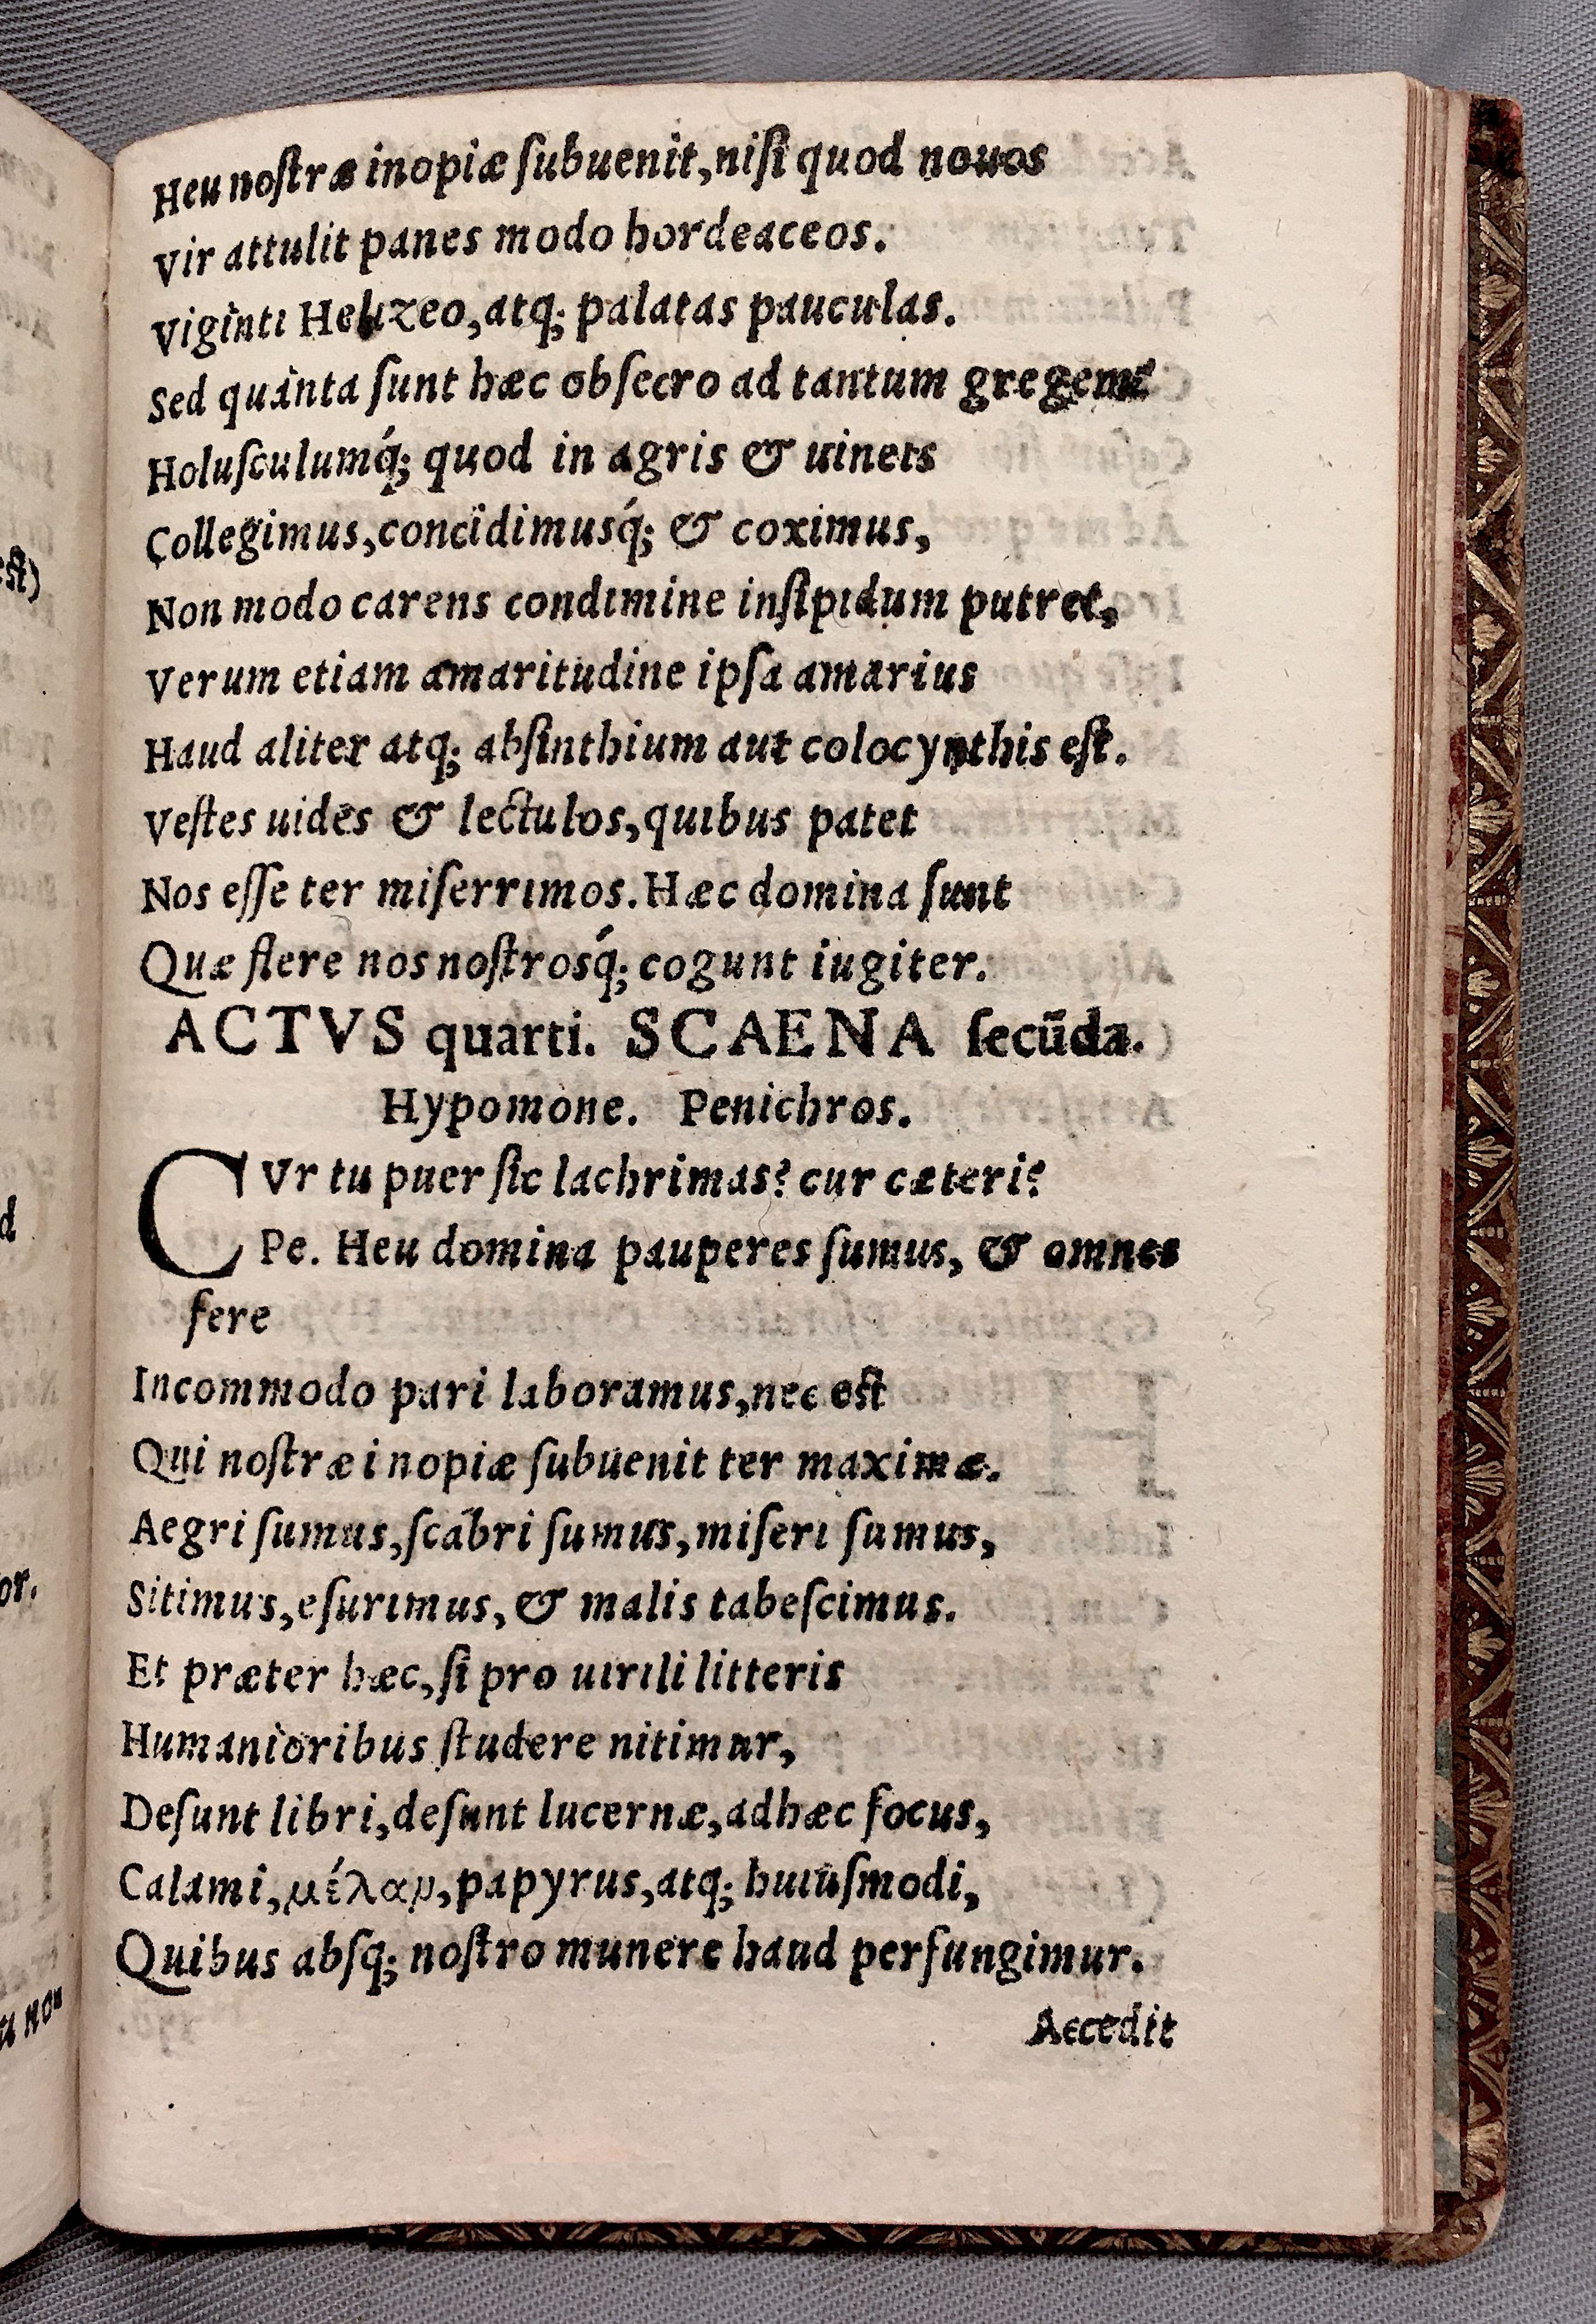 Heu nostræ inopiæ ſubuenit, niſi quod nouos
Vir attulit panes modo hordeaceos.
Viginti Helizeo, atq; palatas pauculas.
Sed quánta ſunt hæc obſecro ad tantum gregem?
Holuſculumq́; quod in agris & uineis
Collegimus, concidimusq́; & coximus,
Non modo carens condimine inſipidum putret,
Verum etiam amaritudine ipſa amarius
Haud aliter atq; abſinthium aut colocynthis eſt.
Veſtes uides & lectulos, quibus patet
Nos eſſe ter miſerrimos. Hæc domina ſunt
Quæ flere nos noſtrosq́; cogunt iugiter.
ACTVS quarti. SCAENA ſecūda.
Hypomone. Penichros.
CVr tu puer ſic lachrimas? cur cæteri?
Pe. Heu domina pauperes ſumus, & omnes
fere
Incommodo pari laboramus, nec eſt
Qui noſtræ inopiæ ſubuenit ter maximæ.
Aegri ſumus, ſcabri ſumus, miſeri ſumus,
Sitimus, eſurimus, & malis tabeſcimus.
Et præter hæc, ſi pro uirili litteris
Humanioribus ſtudere nitimur,
Deſunt libri, deſunt lucernæ, adhæc focus,
Calami, μέλαν, papyrus, atq; huiuſmodi,
Quibus abſq; noſtro munere haud perfungimur.
Accedit
eſt)
d
or.